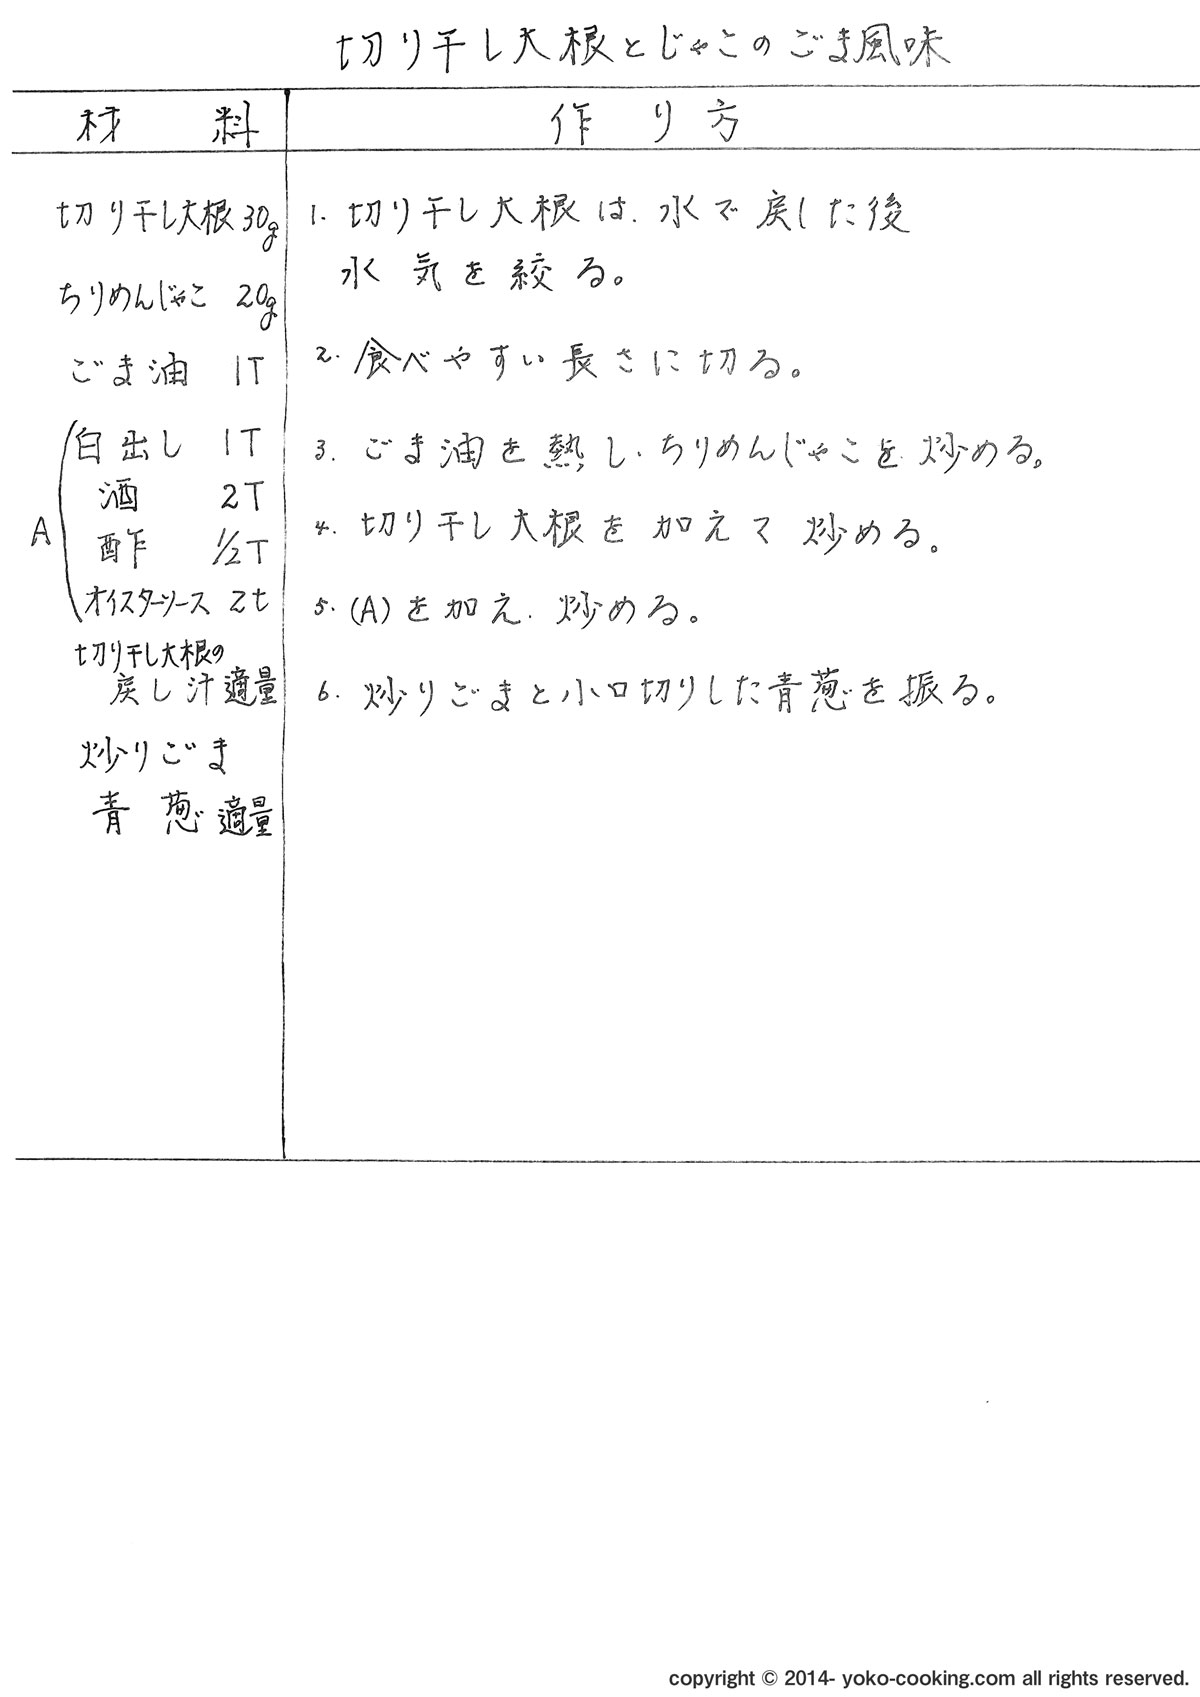 切り干し大根とじゃこのごま風味
材料
作り方
切り干し大根 30g
ちりめんじゃこ 20g
ごま油 1T
A
白出し 1T
酒 2T
酢 1/2T
オイスターソース 2t
切り干し大根の
戻し汁 適量
炒りごま
青葱 適量
1. 切り干し大根は、水で戻した後
水気を絞る。
2. 食べやすい長さに切る。
3. ごま油を熱し、ちりめんじゃこを炒める。
4. 切り干し大根を加えて炒める。
5. (A)を加え、炒める。
6. 炒りごまと小口切りした青葱を振る。
copyright © 2014- yoko-cooking.com all rights reserved.